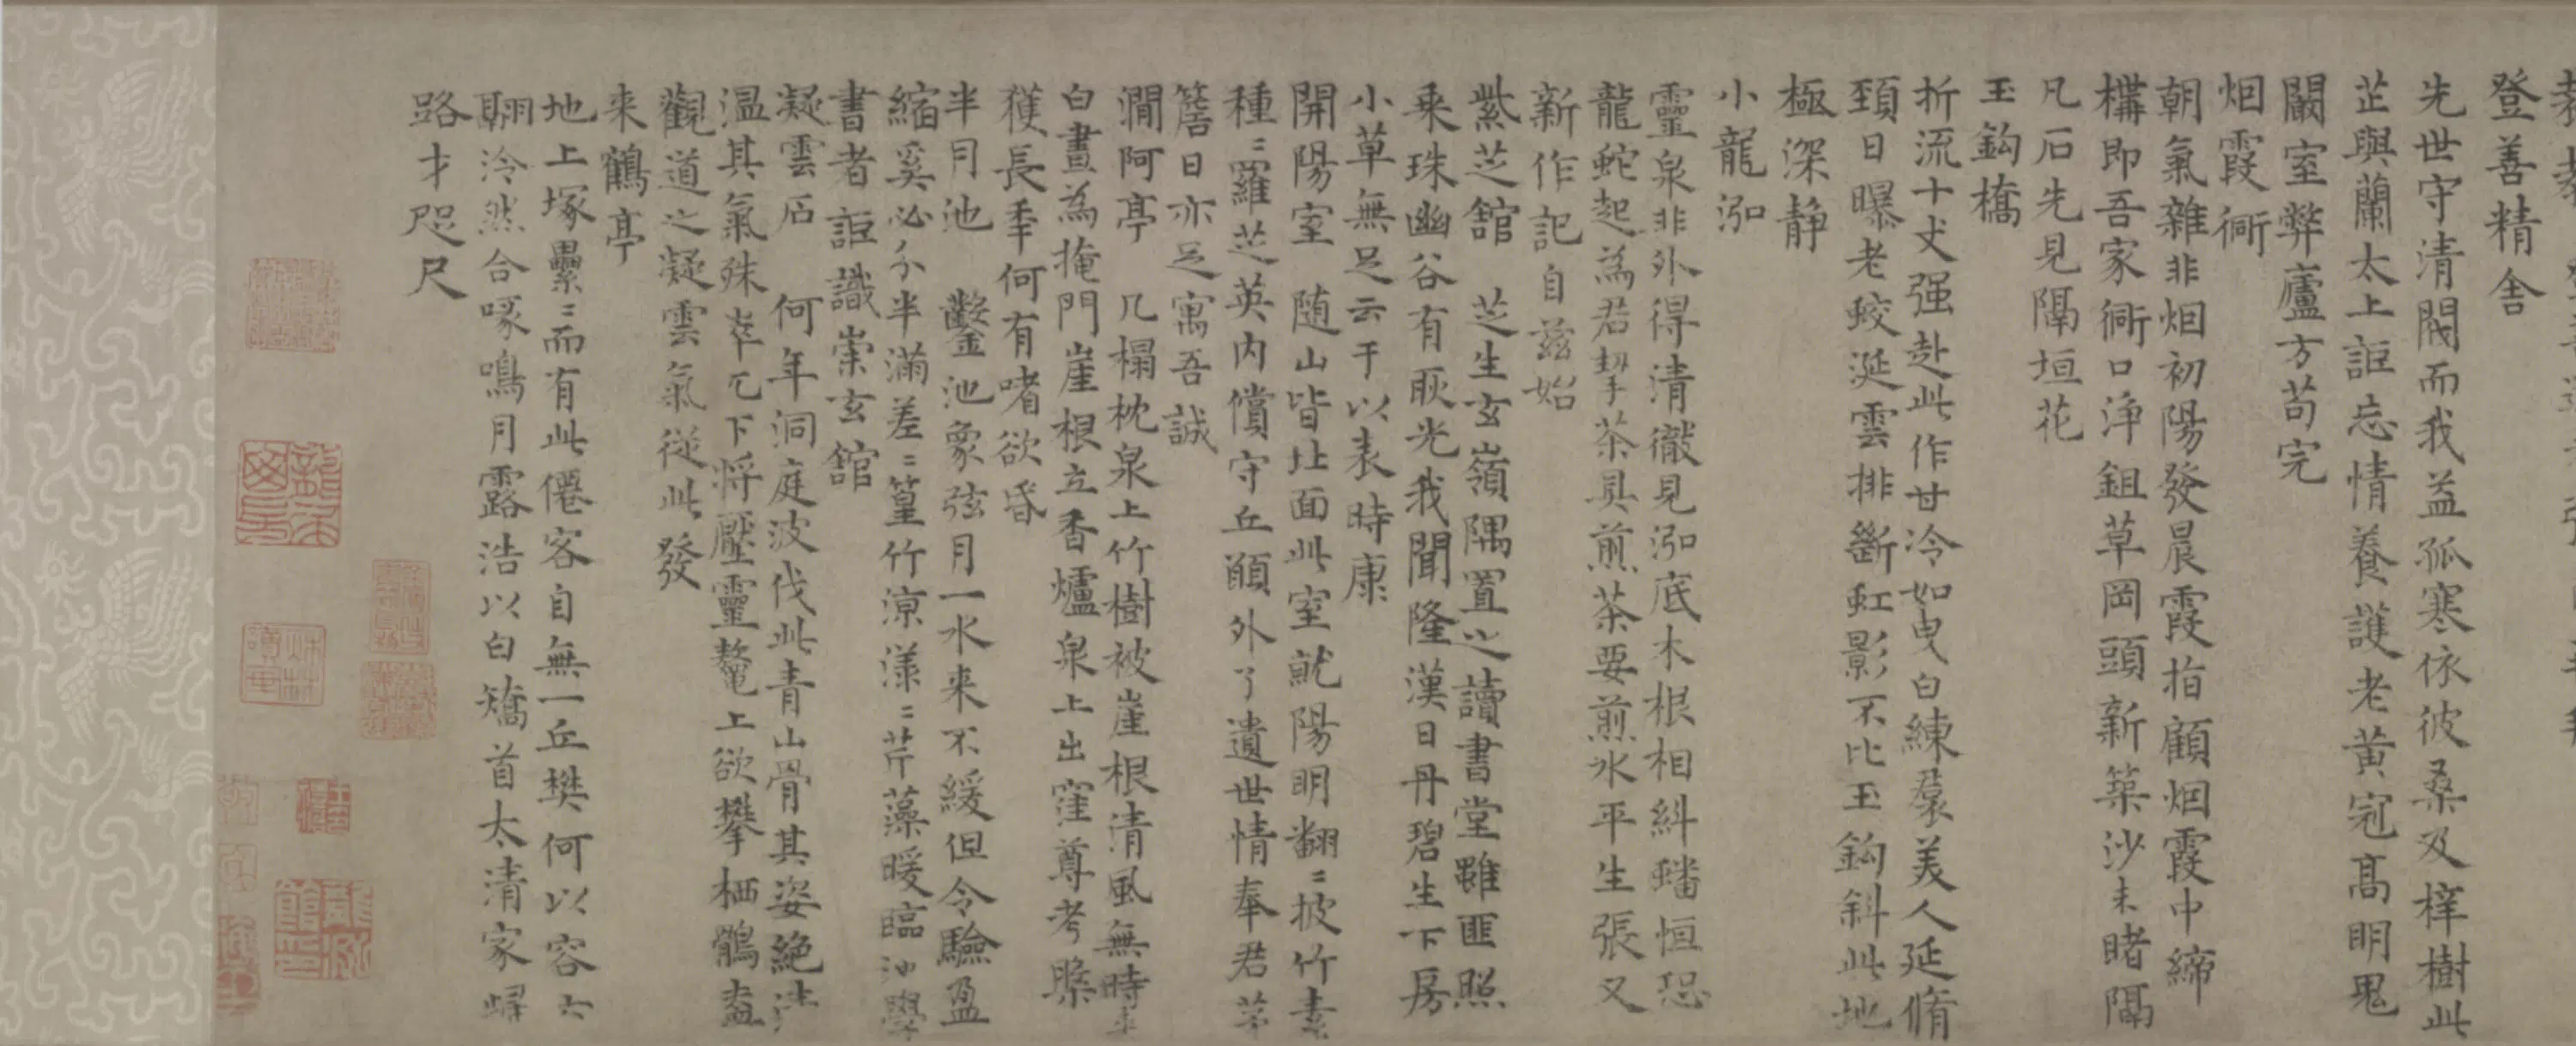 登善精舍
先世守清閥而我益孤寒依彼桑及梓樹此
芷與蘭太上詎忘情養護老黃冠高明鬼
闞室弊廬方苟完
烟霞衕
朝氣雜非烟初陽發晨霞指顧烟霞中締
構即吾家衕口淨鉏草岡頭新築沙未睹隔
凡石先見隔垣花
玉鈎橋
折流十丈强赴此作甘冷如曳白練裠美人延脩
頚日曝老蛟涎雲排斷虹影不比玉鈎斜此地
極深静
小龍泓
靈泉非外得清徹見泓底木根相糾蟠恒恐
龍蛇起爲君挈茶具煎茶要煎水平生張又
新作記自兹始
紫芝舘 芝生玄嶺隅置之讀書堂雖匪照
乗珠幽谷有耿光我聞隆漢日丹碧生下房
小草無足云于以表時康
開陽室 随山皆北面此室就陽明翻〻披竹素
種〻羅芝英内償守丘願外了遺世情奉君茅
簷日亦足寓吾誠
澗阿亭 几榻枕泉上竹樹被崖根清風無時来
白晝為掩門崖根立香爐泉上出窪尊考槃
獲長年何有嗜欲昏
半月池 鑿池象弦月一水来不緩但令驗盈
縮奚必分半滿差〻篁竹凉漾〻芹藻暖臨池學
書者詎識崇玄舘
凝雲石 何年洞庭波伐此青山骨其姿絶清
温其氣殊崒兀下将壓靈鼇上欲攀栖鶻盍
觀道之凝雲氣從此發
来鶴亭
地上塚纍〻而有此僊客自無一丘樊何以容六
翮泠然合啄鳴月露浩以白矯首太清家歸
路才咫尺